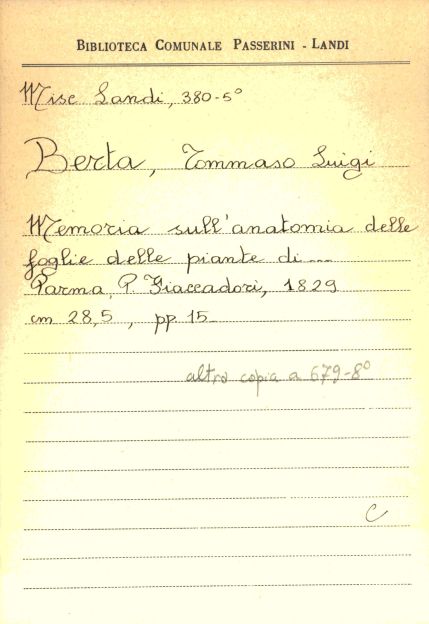 BIBLIOTECA COMUNALE PASSERINI - LANDI
Misc Landi, 380-5°
Berta, Tommaso Luigi
Memoria sull'anatomia delle
foglie delle piante di...
Parma, P. Fiaccadori, 1829
cm 28,5, pp 15
altra copia a 679-8°
C